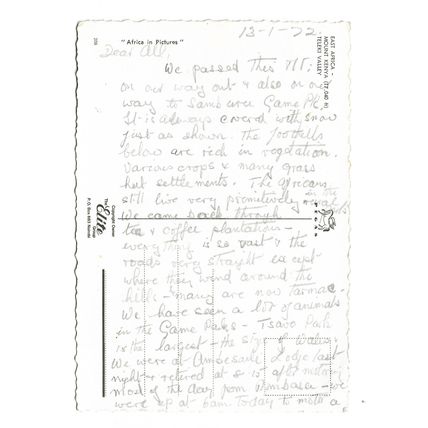 "Africa in Pictures"
208
EAST AFRICA -
MOUNT KENYA (17,040 ft)
TELEKI VALLEY
Copyright Owner
The Elite Group
P.O. Box Nairobi
13-1-72.
Dear All,
We passed this MT:
on our way out & also on our
way to Samburu Game PK,
It is always covered with snow
just as shown. The foothills
below are rich in vegetation.
Various crops & many grass
hut settlements. The Africans
still live very primitively in the
We came back through
tea & coffee plantations -
everything is so vast & the
roads very straight except
where they wind around the
hills - many are now tarmac.
We have seen a lot of animals
in the Game Parks - Tsavo Park
is the largest - the size of Wales
We were at Amboseli Lodge last
night & retired at 8.15 after motoring
most of the day from Mombasa - we
were up at 6am today to motor a